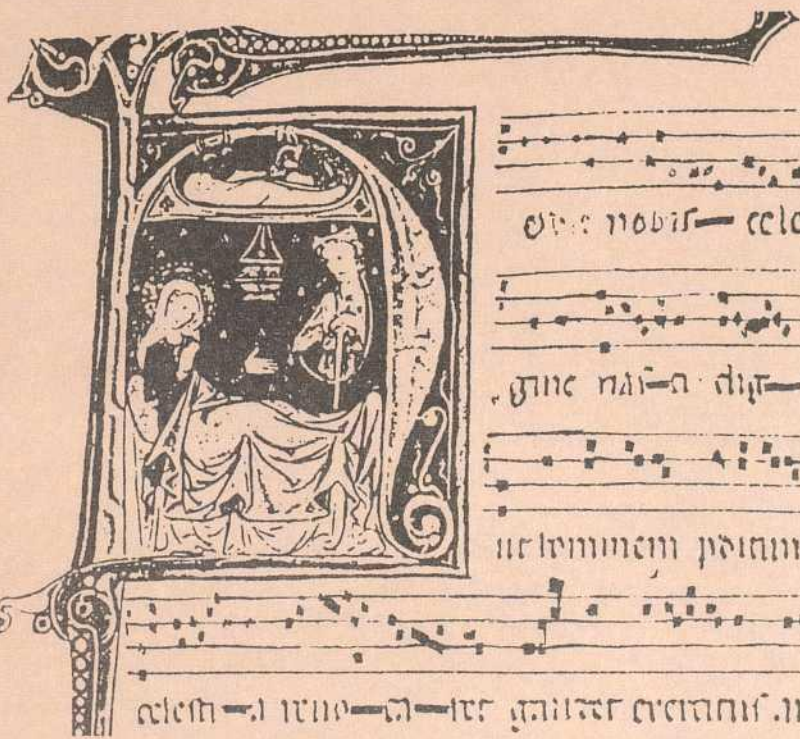 Hodie nobis— celo
gine nas—ci dig—
ut hominem perditum
celesti—a revo—ca—ret gaudet exercitus